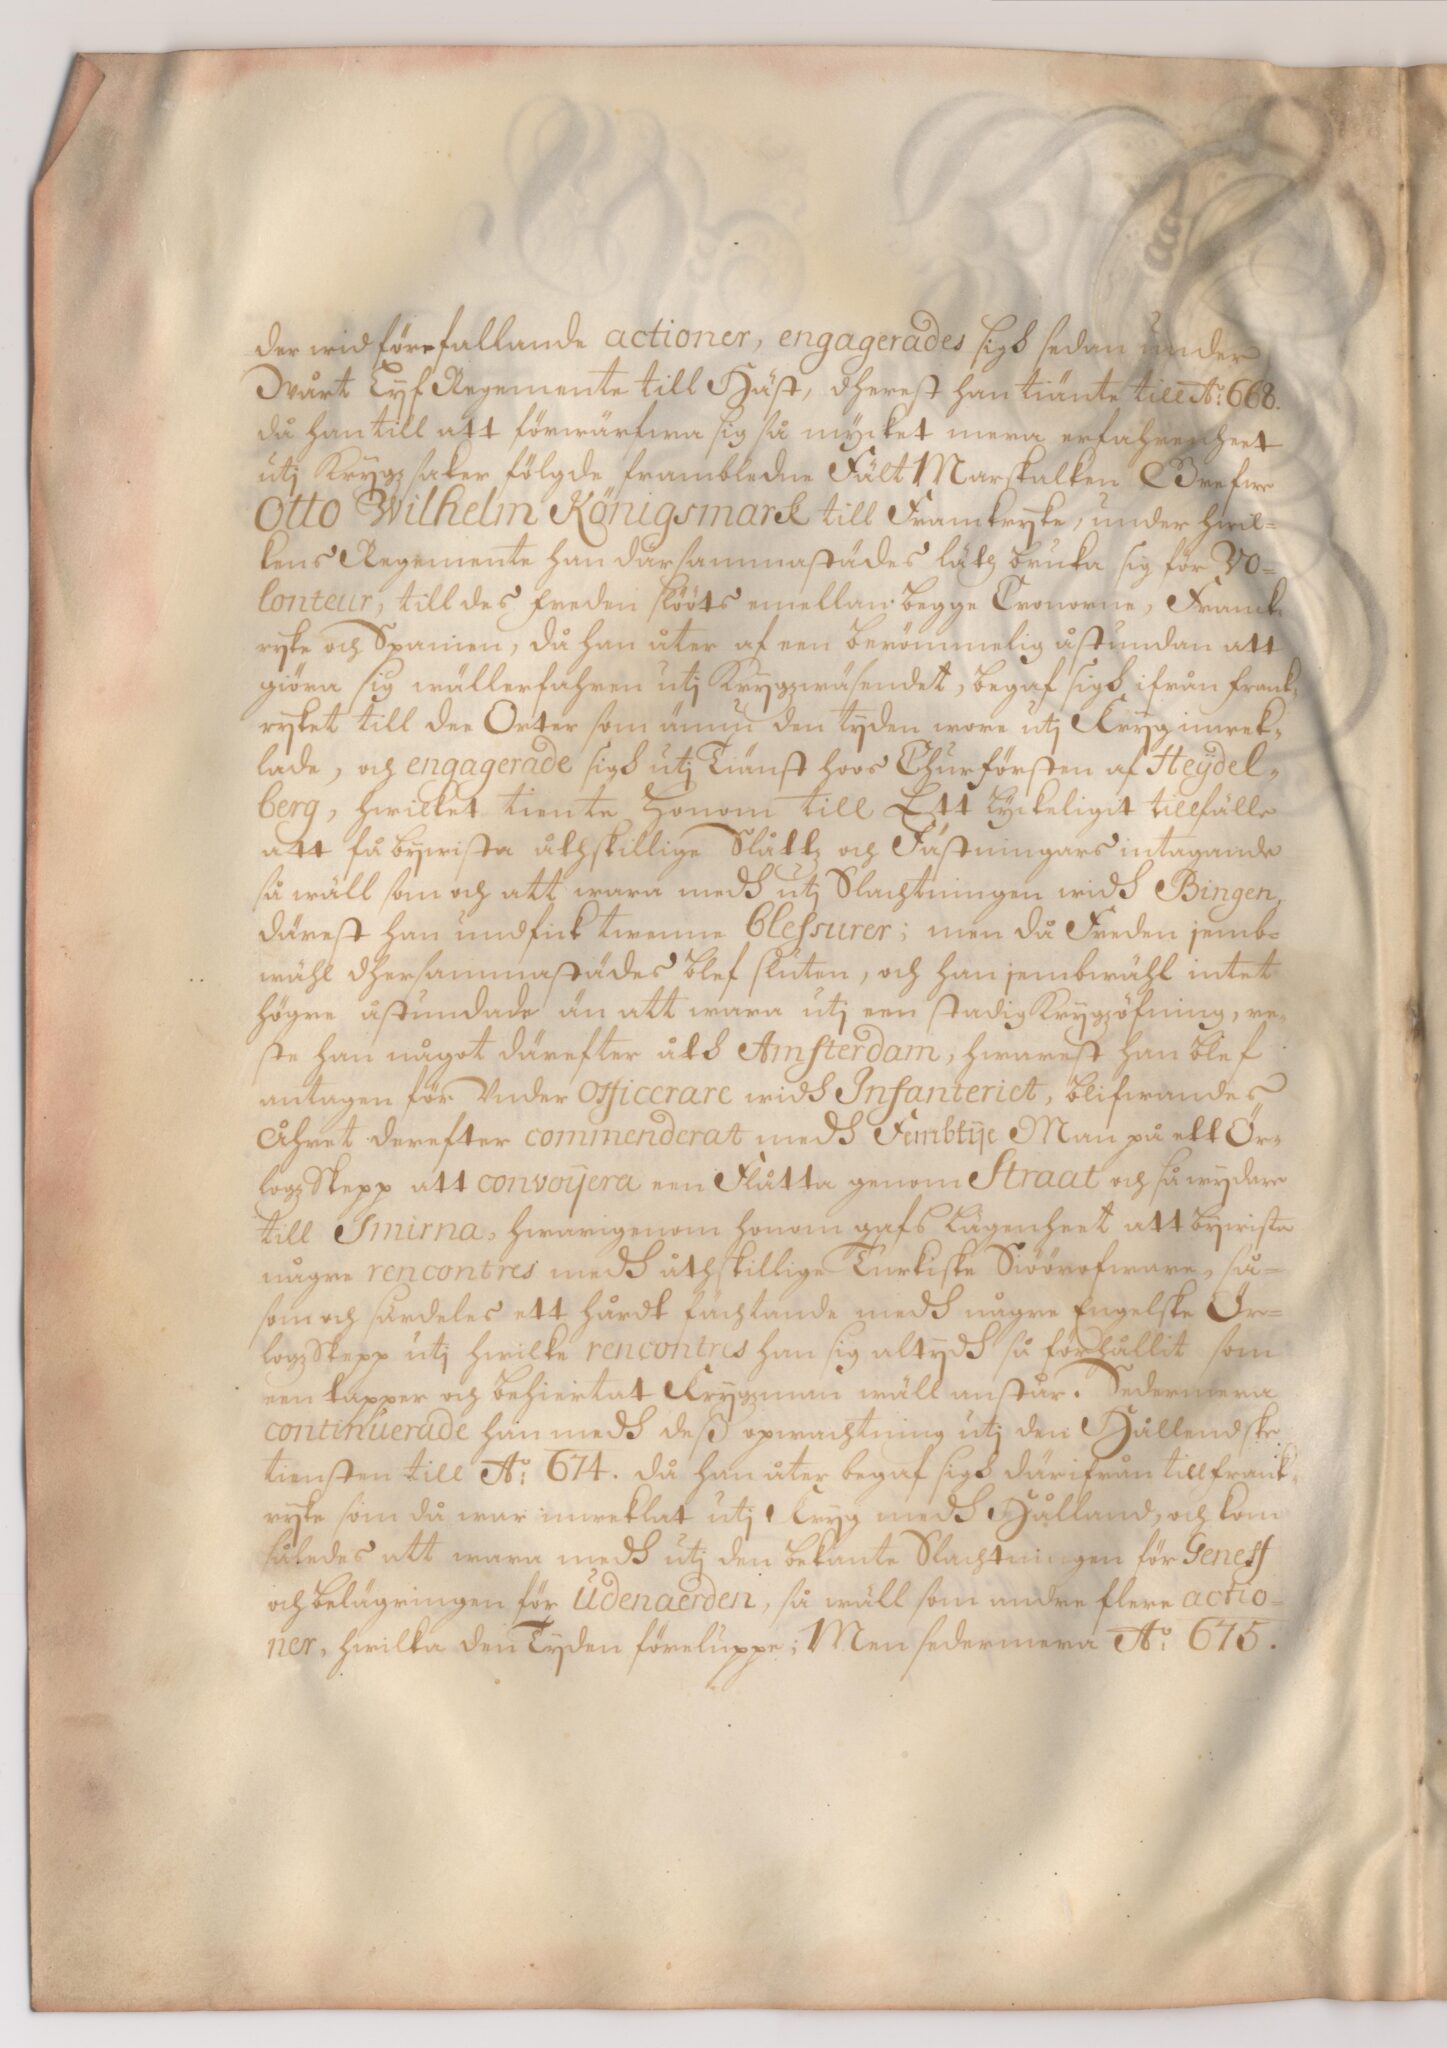 der widförefallande actioner, engagerades sigh sedan under
Wårt Lyf Regemente till Häst, dherest han tiänte till A:o 668.
då han till att förwärfwa sig så mycket mera erfahrenheet
utj Krygzsaker fölgde frambledne Fält Marskalken Grefwe
Otto Wilhelm Königsmark till Franckryke, under hwil-
kens Regemente han därsammastädes lätz bruka sig för Vo-
lonteur, till des freden slööts emellan begge Cronorne, Franck
ryke och Spanien, då han åter af een berömmelig åstundan att
giöra sig wällerfahren utj Krygzwäsendet, begaf sigh ifrån Frank-
ryket till dee Orter som ännu den tyden wore utj Kryg inwek-
lade, och engagerade sigh utj Tiänst hoos Churförsten af Heÿdel-
berg, hwilket tiente honom till Ett lyckeligit tillfälle
att få bywista åthskillige Slåttz och Fästningars intagande
så wäll som och att wara medh utj Slachtningen widh Bingen,
därest han undfick twenne blessurer; men då Freden jemb-
wähl dhersammastädes blef sluten, och han jembwähl intet
högre åstundade än att wara utj een stadig Krygzöfning, re-
ste han något därefter åth Amsterdam, hwarest han blef
antagen för Under Officerare widh Infanteriet, blifwandes
Åhret derefter commenderat medh Fembtije Man på ett Ör-
logz Skepp att convoijera een Flåtta genom Straat och så wydare
till Smirna, hwarigenom honom gafs lägenheet att bywista
någre rencontres medh åthskillige Turkiske Siöörofware, så-
som och särdeles ett hårdt fächtande medh någre Engelske Ör-
logz Skepp utj hwilke rencontres han sig altydh så förhållit som
een tapper och behiertat Krygzman wäll anstår. Sedermera
continuerade han medh deß opwachtning utj den Hållendske
tiensten till A:o 674. då han åter begaf sigh därifrån till Frank-
ryke som då war inweklat utj Kryg medh Hålland, och kom
således att wara medh utj den bekante Slachtningen för Geneff
och belägringen för Udenaerden, så wäll som andre flere actio-
ner, hwilka den Tyden föreluppe; Men sedermera A:o 675.